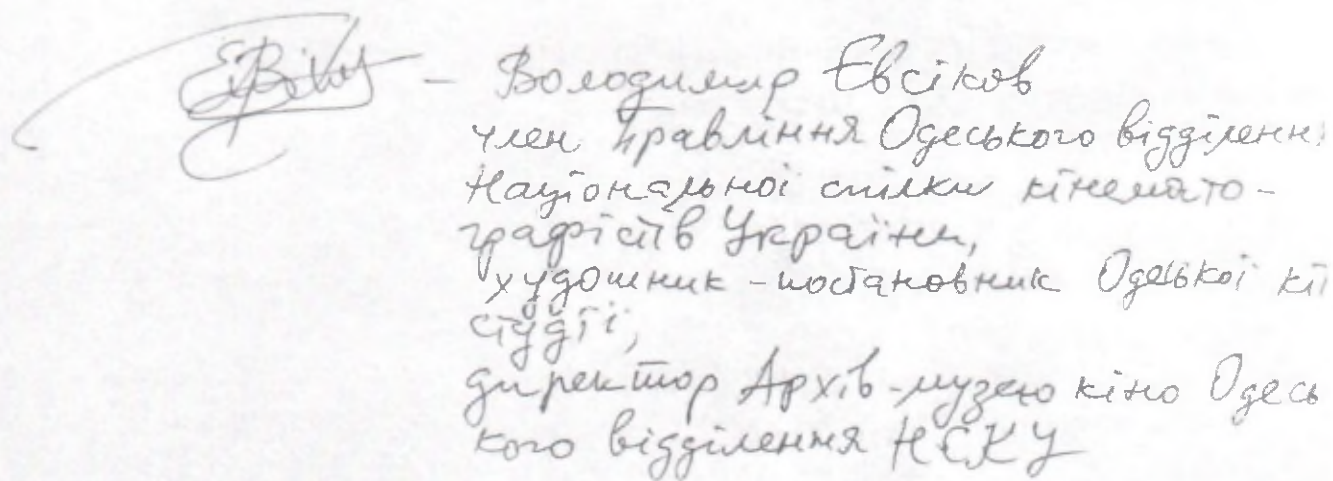 – Володимир Євсіков
член правління Одеського відділенн
Національної спілки кінемато-
графістів України,
художник-постановник Одеської кі
студії,
директор Архів-музею кіно Одесь
кого відділення НСКУ